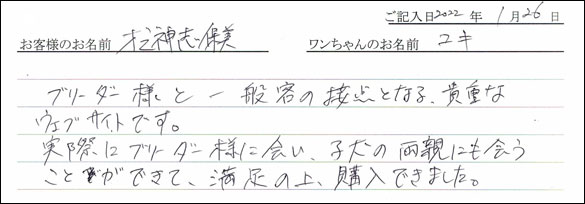 ご記入日2022年 1月26日
お客様のお名前 ワンちゃんのお名前 ユキ
ブリーダー様と一般客の接点となる、貴重な
ウェブサイトです。
実際にブリーダー様に会い、子犬の両親にも会う
ことができて、満足の上、購入できました。